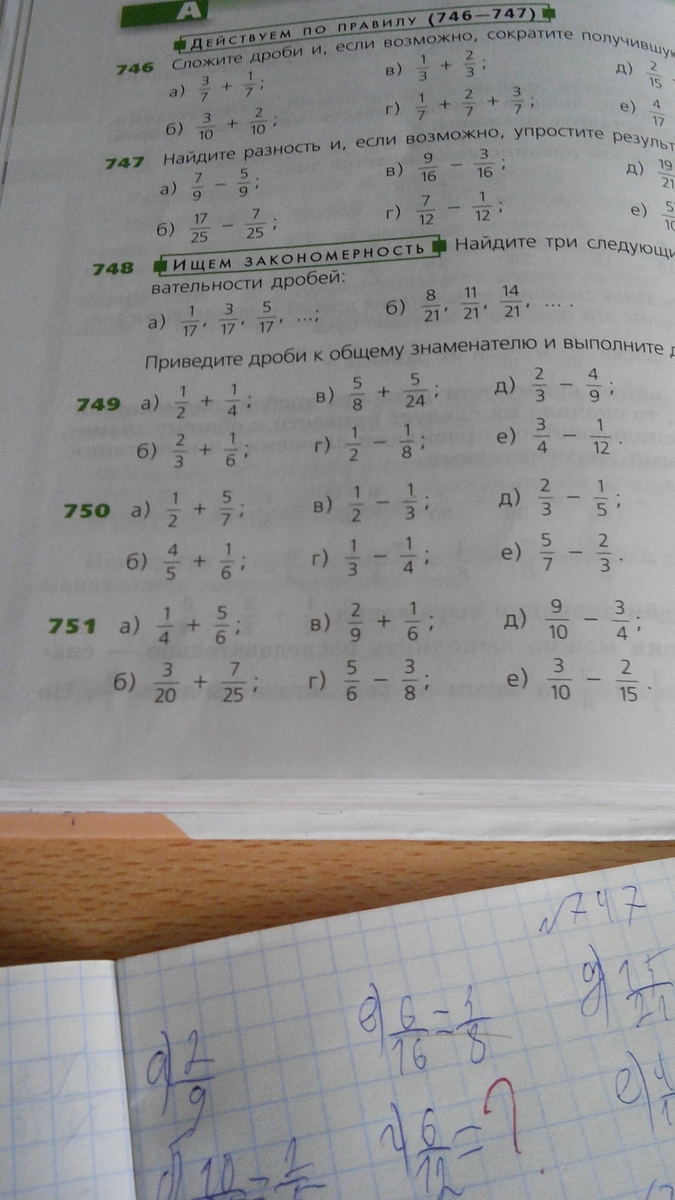 А
ДЕЙСТВУЕМ ПО ПРАВИЛУ (746—747)
746 Сложите дроби и, если возможно, сократите
а) 3/7 + 1/7; в) 1/3 + 2/3; д) 2/15
б) 3/10 + 2/10; г) 1/7 + 2/7 + 3/7; е) 4/17
747 Найдите разность и, если возможно, упростите
а) 7/9 − 5/9; в) 9/16 − 3/16; д) 19/21
б) 17/25 − 7/25; г) 7/12 − 1/12; е)
748 ИЩЕМ ЗАКОНОМЕРНОСТЬ Найдите три
вательности дробей:
а) 1/17, 3/17, 5/17, ...; б) 8/21, 11/21, 14/21, ... .
Приведите дроби к общему знаменателю и выполните
749 а) 1/2 + 1/4; в) 5/8 + 5/24; д) 2/3 − 4/9;
б) 2/3 + 1/6; г) 1/2 − 1/8; е) 3/4 − 1/12.
750 а) 1/2 + 5/7; в) 1/2 − 1/3; д) 2/3 − 1/5;
б) 4/5 + 1/6; г) 1/3 − 1/4; е) 5/7 − 2/3.
751 а) 1/4 + 5/6; в) 2/9 + 1/6; д) 9/10 − 3/4;
б) 3/20 + 7/25; г) 5/6 − 3/8; е) 3/10 − 2/15.
√747
а) 2/9 в) 6/16 = 3/8 д) 15/21
г) 6/12 = ? е)